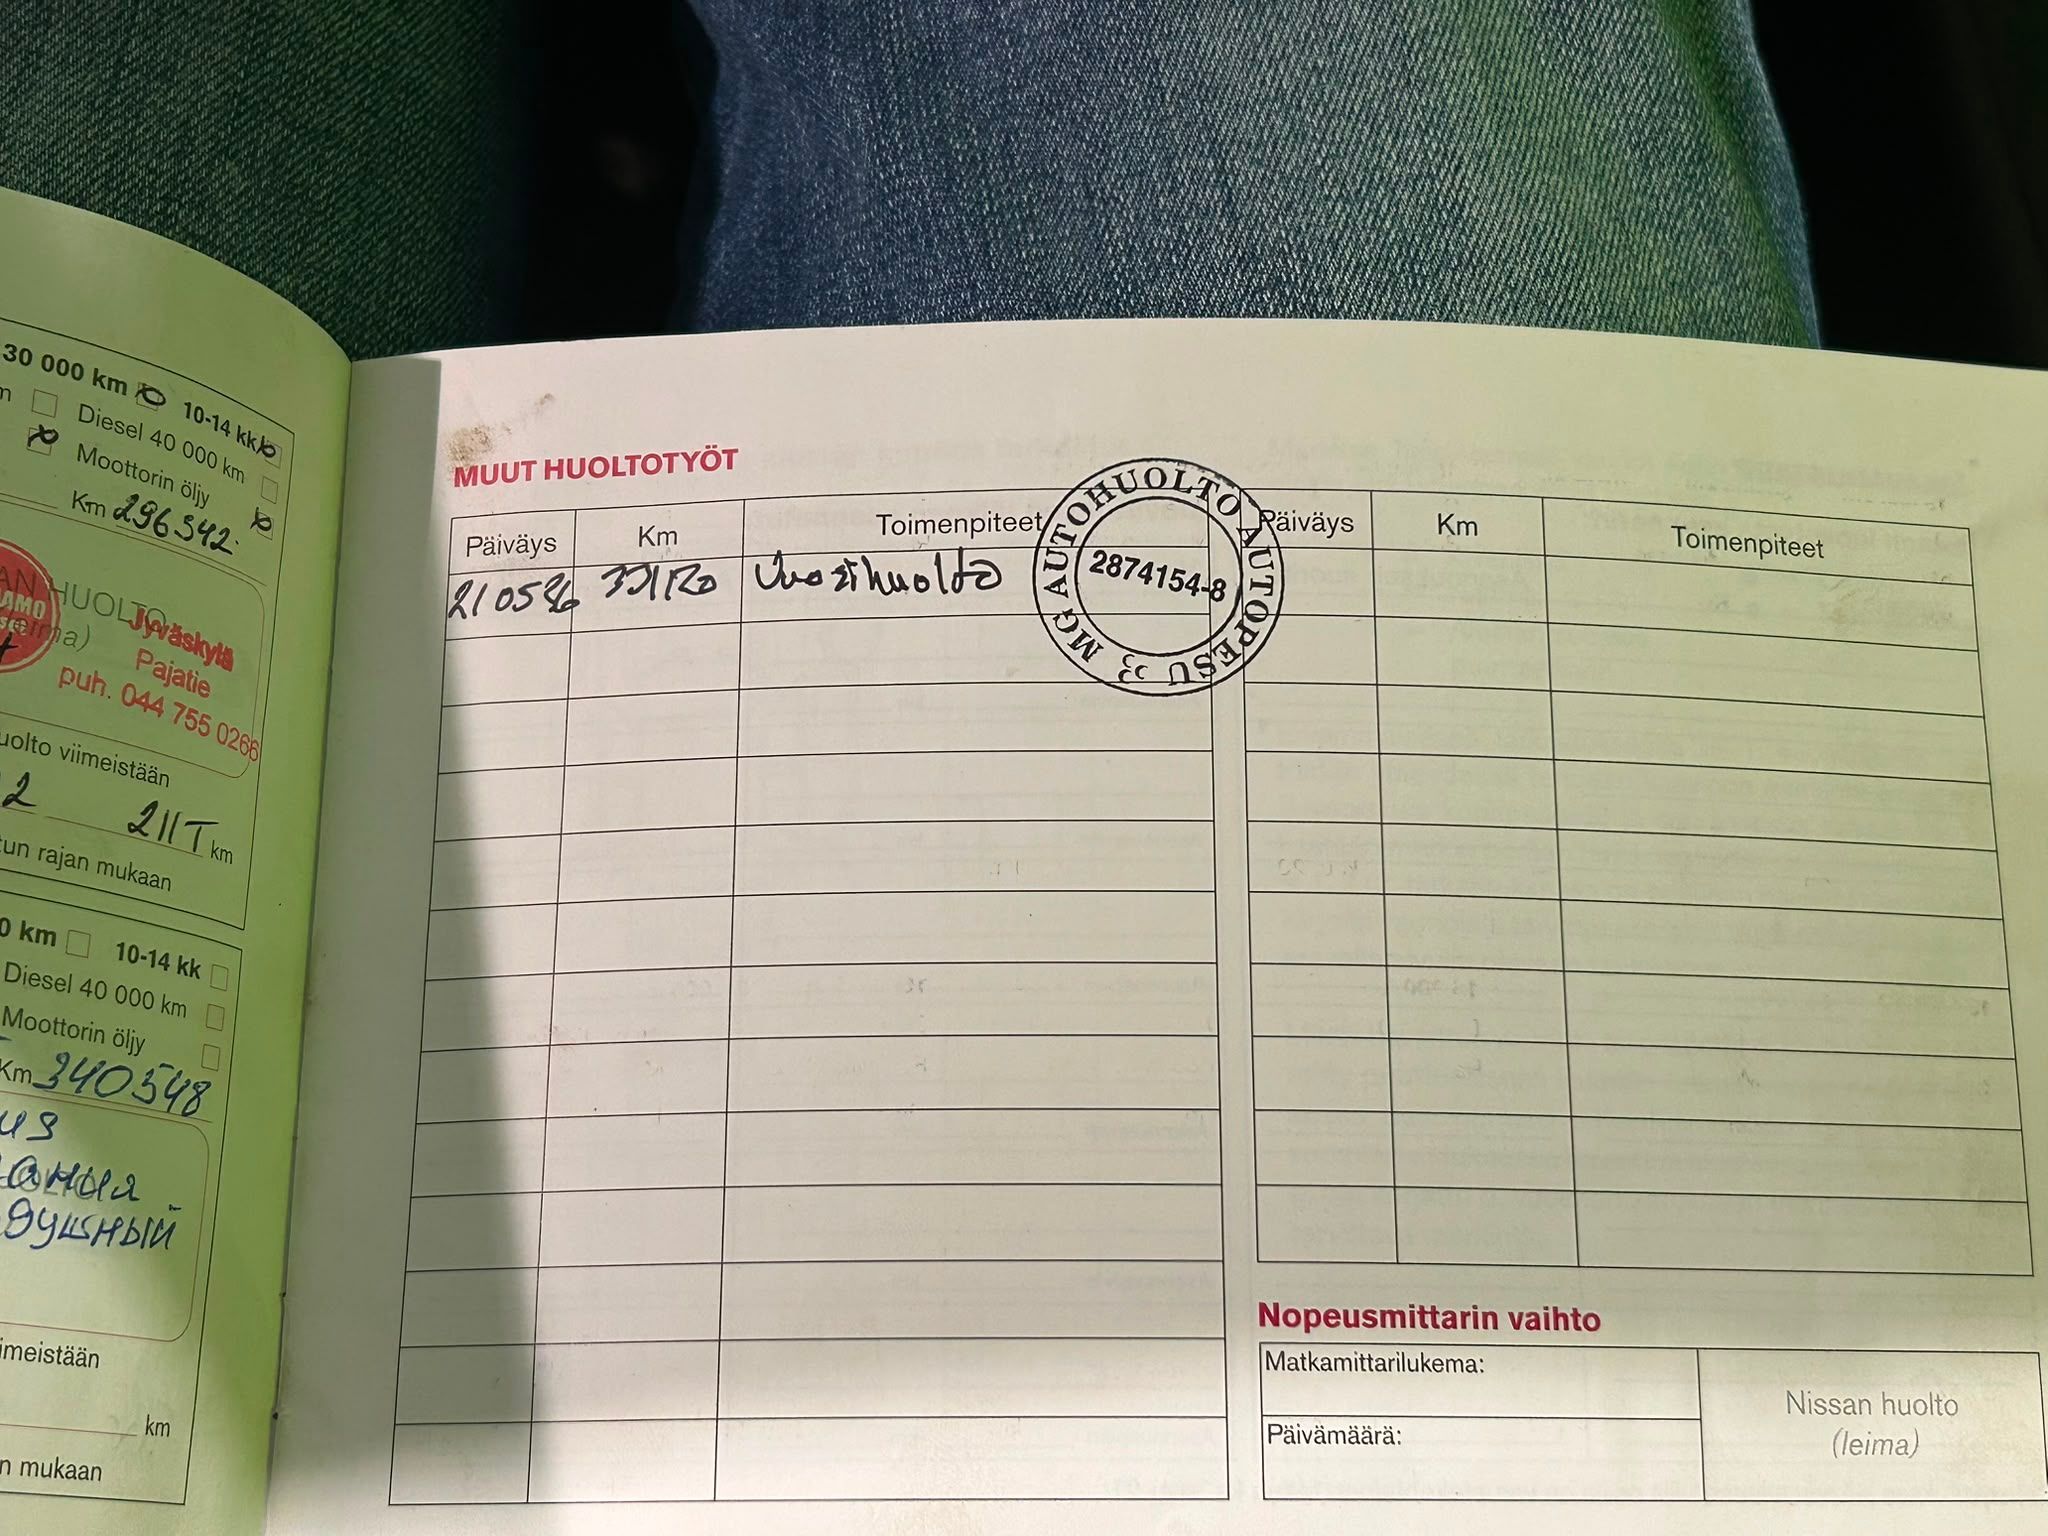 30 000 km 10-14 kk
Diesel 40 000 km
Moottorin öljy
Km 296342
HUOLTO
Jyväskylä
Pajatie
puh. 044 755 0266
huolto viimeistään
2 211T km
tun rajan mukaan
0 km 10-14 kk
Diesel 40 000 km
Moottorin öljy
Km 340548
душный
imeistään
km
n mukaan
MUUT HUOLTOTYÖT
Päiväys Km Toimenpiteet
Vuosihuolto
MG AUTOHUOLTO AUTOPESU
2874154-8
Päiväys Km Toimenpiteet
Nopeusmittarin vaihto
Matkamittarilukema:
Päivämäärä:
Nissan huolto
(leima)